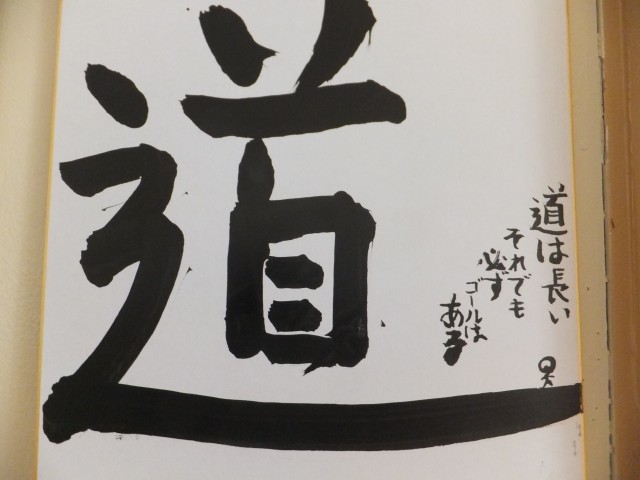 道
道は長い
それでも
必ず
ゴールは
ある